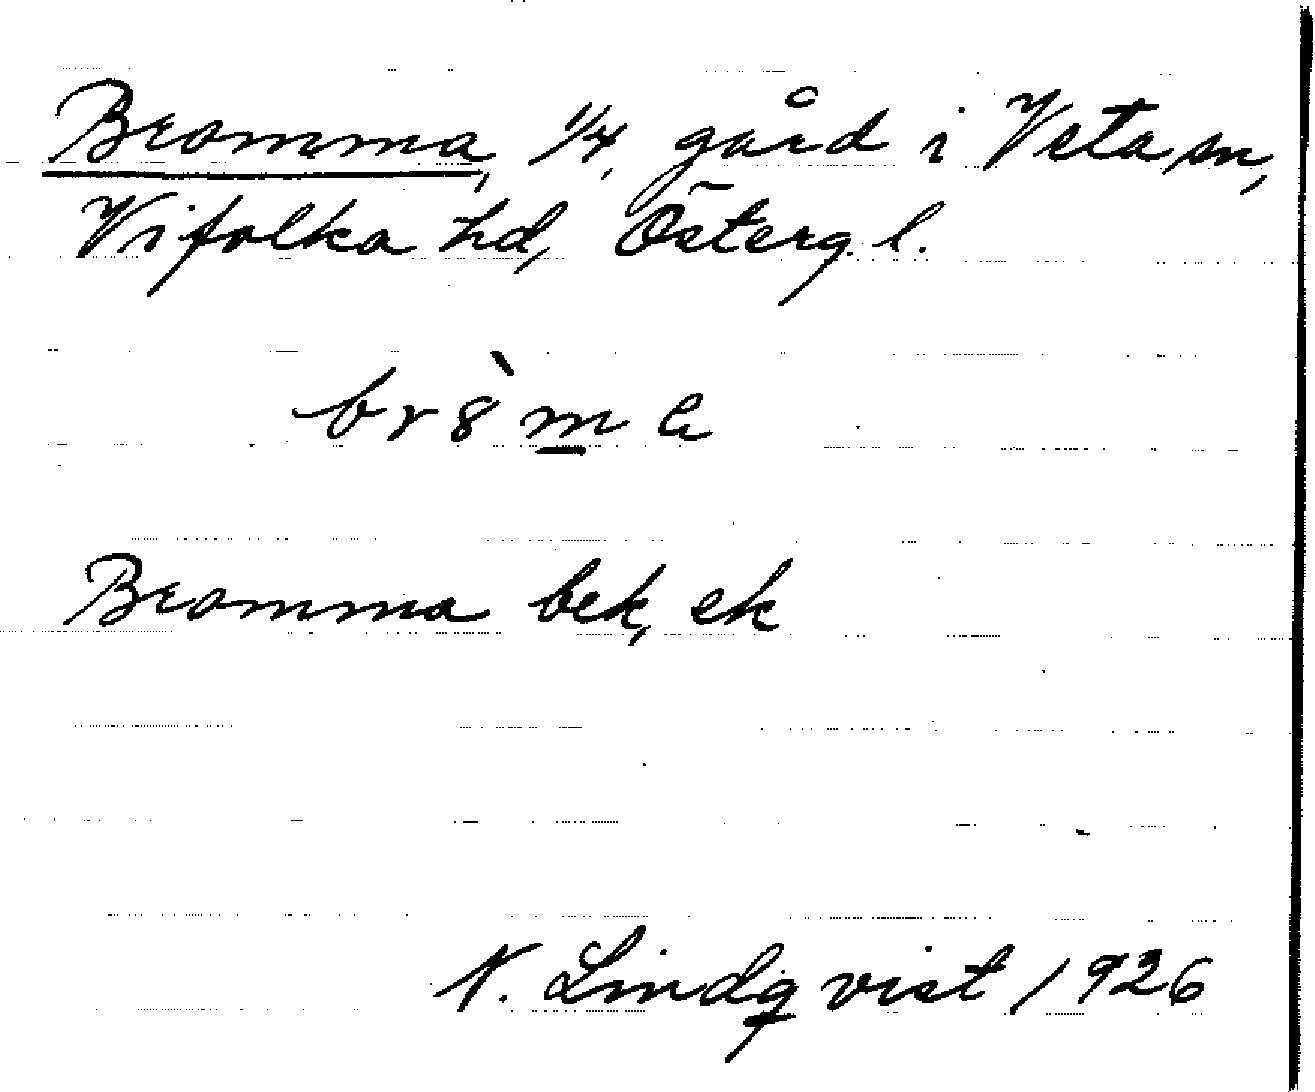 Bromma, 1/4, gård i Veta sn,
Vifolka hd, Österg. l.
br8̀m̲a
Bromma bek, ek
N. Lindqvist 1926